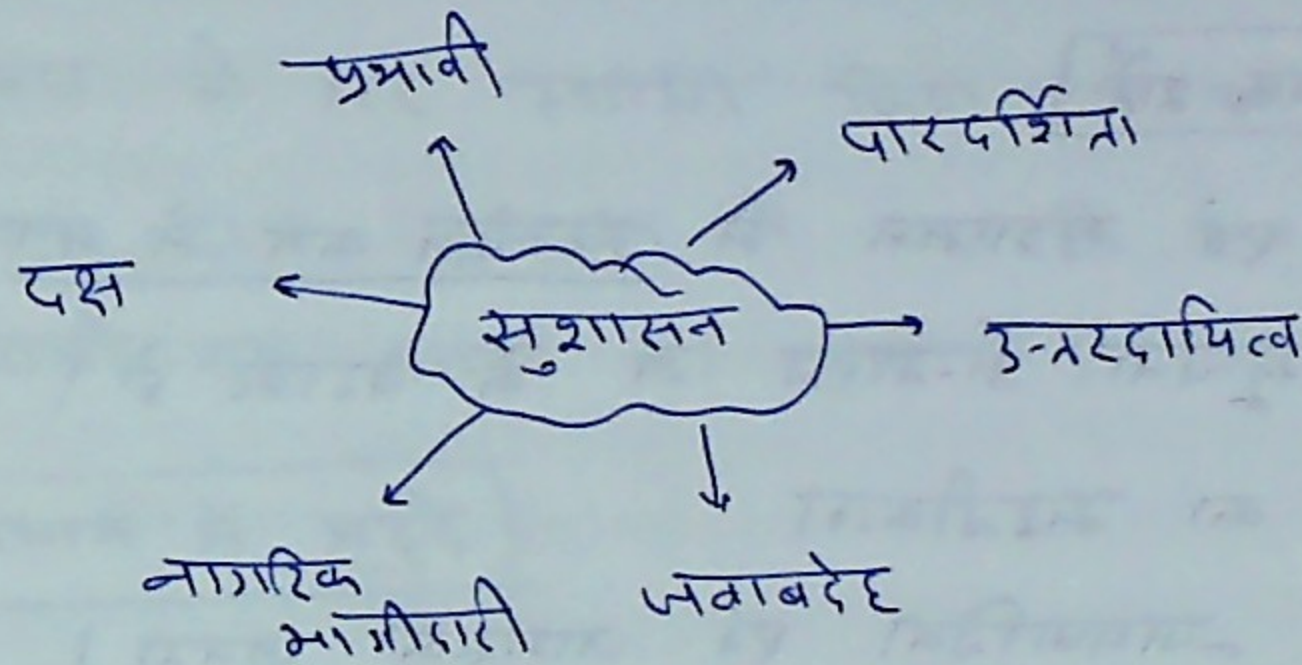 प्रभावी
पारदर्शिता
दक्ष
सुशासन
उत्तरदायित्व
नागरिक
भागीदारी
जवाबदेह